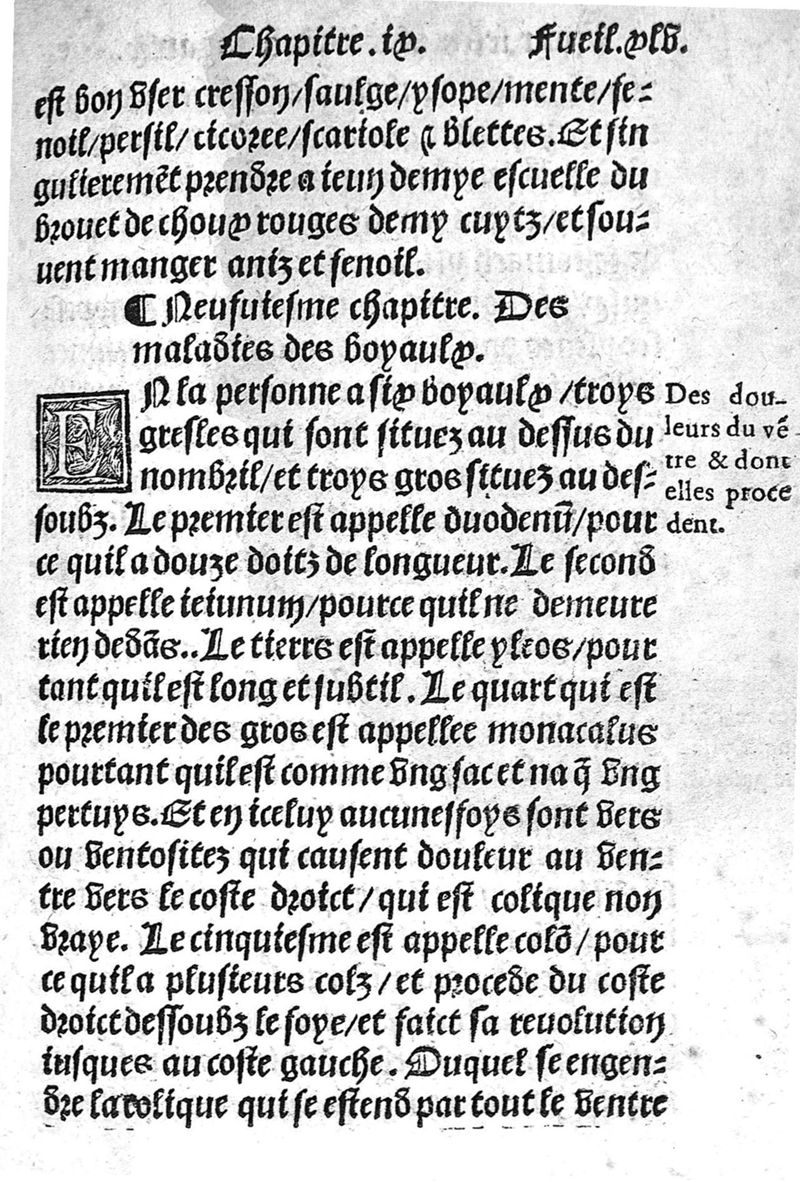 Chapitre.ix. Fueil.xlv.
est bon vser cresson/saulge/ysope/mente/fe⸗
noil/persil/cicoree/scariole ⁊ blettes.Et sin
gulieremẽt prendre a ieun demye escuelle du
brouet de choux rouges demy cuytz/et sou⸗
uent manger aniz et fenoil.
¶ Neufuiesme chapitre. Des
maladies des boyaulx.
EN la personne a six boyaulx /troys
gresles qui sont situez au dessus du
nombril/et troys gros situez au des⸗
soubz. Le premier est appelle duodenũ/pour
ce quil a douze doitz de longueur.Le second
est appelle ieiunum/pource quil ne demeure
rien dedãs..Le tierrs est appelle yleos/pour
tant quil est long et subtil. Le quart qui est
le premier des gros est appellee monacalus
pourtant quil est comme vng sac et na q̃ vng
pertuys.Et en iceluy aucunesfoys sont vers
ou ventositez qui causent douleur au ven⸗
tre vers le coste droict/ qui est colique non
vraye. Le cinquiesme est appelle colõ/ pour
ce quil a plusieurs colz /et procede du coste
droict dessoubz le foye/et faict sa reuolution
iusques au coste gauche. Duquel se engen⸗
dre la colique qui se estend par tout le ventre
Des dou-
leurs du vẽ-
tre & dont
elles proce
dent.